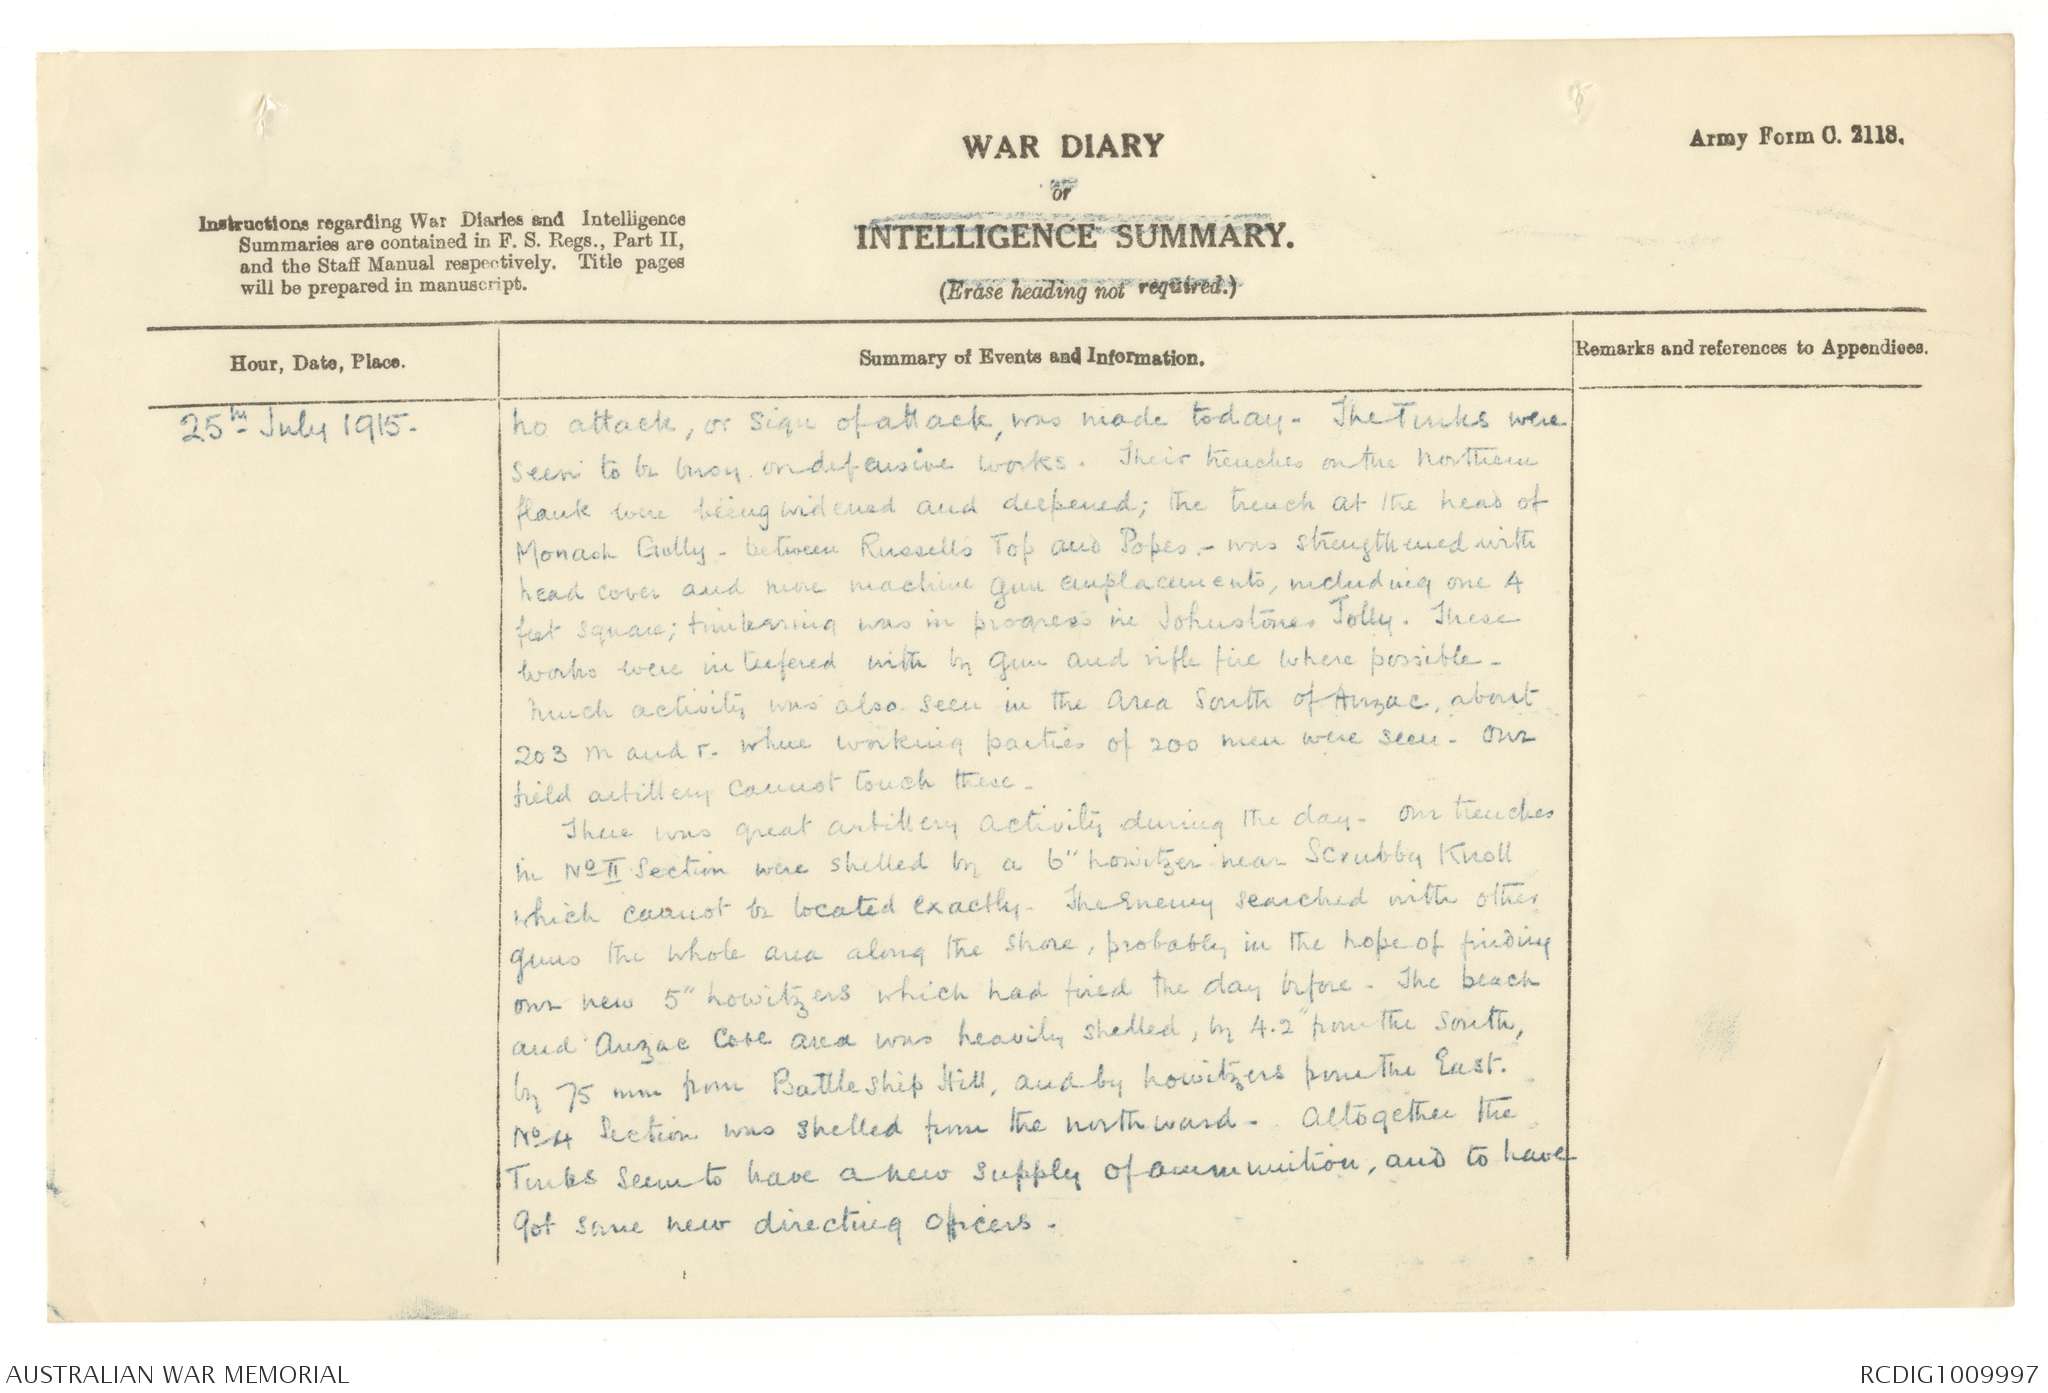 WAR DIARY
or
INTELLIGENCE SUMMARY.
(Erase heading not required.)
Army Form C. 2118.
Instructions regarding War Diaries and Intelligence
Summaries are contained in F. S. Regs., Part II,
and the Staff Manual respectively. Title pages
will be prepared in manuscript.
Hour, Date, Place.
Summary of Events and Information.
Remarks and references to Appendices.
25th July 1915.
No attack, or sign of attack, was made today - The Turks were
seen to be busy on defensive works. Their trenches on the Northern
flank were being widened and deepened; the trench at the head of
Monash Gully - between Russell's Top and Popes - was strengthened with
head cover and more machine gun emplacements, including one 4
feet square; timbering was in progress in Johnstones Jolly. These
works were intefered with by gun and rifle fire where possible -
Much activity was also seen in the area South of Anzac, about
203 m and r. where working parties of 200 men were seen - Our
field artillery cannot touch these -
There was great artillery activity during the day - Our trenches
in No II Section were shelled by a 6" howitzer near Scrubby Knoll
which cannot be located exactly - The Enemy searched with other
guns the whole area along the shore, probably in the hope of finding
our new 5" howitzers which had fired the day before - The beach
and Anzac Cove area was heavily shelled, by 4.2" from the South,
by 75 mm from Battleship Hill, and by howitzers from the East.
No 4 Section was shelled from the northward - Altogether the
Turks seem to have a new supply of ammunition, and to have
got some new directing officers -
AUSTRALIAN WAR MEMORIAL
RCDIG1009997